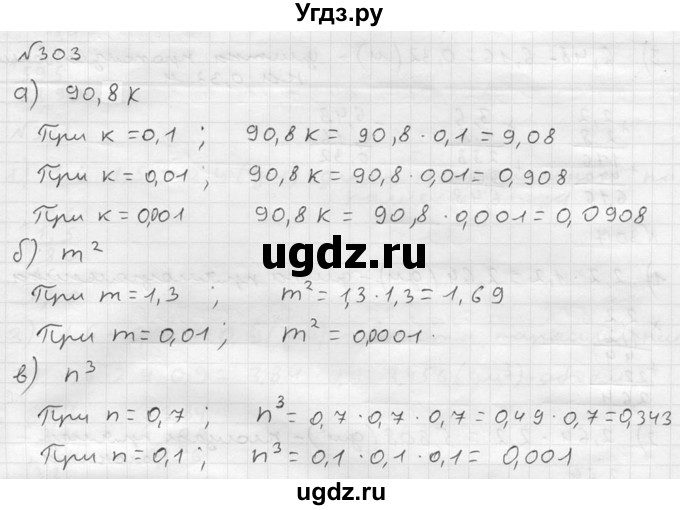 Угдз.ру
№303
а) 90,8 к
При к = 0,1 ; 90,8 к = 90,8 · 0,1 = 9,08
При к = 0,01 ; 90,8 к = 90,8 · 0,01 = 0,908
При к = 0,001 90,8 к = 90,8 · 0,001 = 0,0908
ugdz.ru
б) m²
При m = 1,3 ; m² = 1,3 · 1,3 = 1,69
При m = 0,01 ; m² = 0,0001.
ugdz.ru
в) n³
При n = 0,7 ; n³ = 0,7 · 0,7 · 0,7 = 0,49 · 0,7 = 0,343
При n = 0,1 ; n³ = 0,1 · 0,1 · 0,1 = 0,001
ugdz.ru